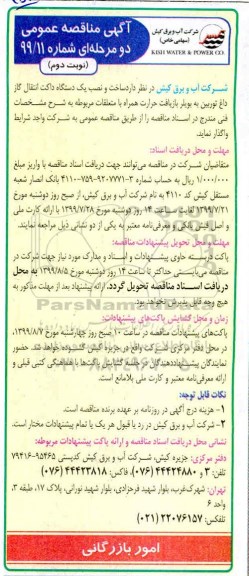 شرکت آب و برق کیش
(سهامی خاص)
KISH WATER & POWER CO.
آگهی مناقصه عمومی
دو مرحله‌ای شماره ۹۹/۱۱
(نوبت دوم)
شرکت آب و برق کیش در نظر دارد ساخت و نصب یک دستگاه داکت انتقال گاز
داغ توربین به بویلر بازیافت حرارت همراه با متعلقات مربوطه به شرح مشخصات
فنی مندرج در اسناد مناقصه را از طریق مناقصه عمومی به شرکت واجد شرایط
واگذار نماید.
مهلت و محل دریافت اسناد:
متقاضیان شرکت در مناقصه می‌توانند جهت دریافت اسناد مناقصه با واریز مبلغ
۱/۰۰۰/۰۰۰ ریال به حساب شماره ۳-۹۲۰۷۷۷۱-۷۵۹-۴۱۱۰ بانک انصار شعبه
مستقل کیش کد ۴۱۱۰ به نام شرکت آب و برق کیش، از صبح روز دوشنبه مورخ
۱۳۹۹/۷/۲۱ لغایت ساعت ۱۴ روز دوشنبه مورخ ۱۳۹۹/۷/۲۸ با ارائه کارت ملی
و اصل فیش بانکی و معرفی‌نامه معتبر به یکی از دو نشانی ذیل مراجعه نمایند.
مهلت و محل تحویل پیشنهادات مناقصه:
پاکت دربسته حاوی پیشنهادات و اسناد و مدارک مورد نیاز جهت شرکت در
مناقصه می‌بایستی حداکثر تا ساعت ۱۴ روز دوشنبه مورخ ۱۳۹۹/۸/۵ به محل
دریافت اسناد مناقصه تحویل گردد. ارائه پیشنهاد بعد از مهلت مذکور به
هیچ وجه قابل پذیرش نخواهد بود.
زمان و محل گشایش پاکت‌های پیشنهادات:
پاکت‌های پیشنهادات مناقصه در ساعت ۱۰ صبح روز چهارشنبه مورخ ۱۳۹۹/۸/۷
در محل دفتر مرکزی شرکت واقع در جزیره کیش گشوده خواهد شد. حضور
نمایندگان پیشنهاددهندگان در جلسه گشایش پاکت‌ها با هماهنگی کتبی قبلی و
ارائه معرفی‌نامه معتبر و کارت ملی بلامانع است.
نکات قابل توجه:
۱- هزینه درج آگهی در روزنامه بر عهده برنده مناقصه است.
۲- شرکت آب و برق کیش در رد یا قبول هر یک یا تمام پیشنهادات مختار است.
نشانی محل دریافت اسناد مناقصه و ارائه پاکت پیشنهادات مربوطه:
دفتر مرکزی: جزیره کیش، شرکت آب و برق کیش کدپستی ۹۵۴۶۵-۷۹۴۱۶
تلفن: ۳ و ۴۴۴۲۴۸۸۰ (۰۷۶)، فاکس: ۴۴۴۲۳۸۱۸ (۰۷۶)
تهران: شهرک‌غرب، بلوار شهید فرحزادی، بلوار شهید نورانی، پلاک ۱۷، طبقه ۳،
واحد ۶
تلفکس: ۲۲۰۷۶۱۵۷ (۰۲۱)
امور بازرگانی